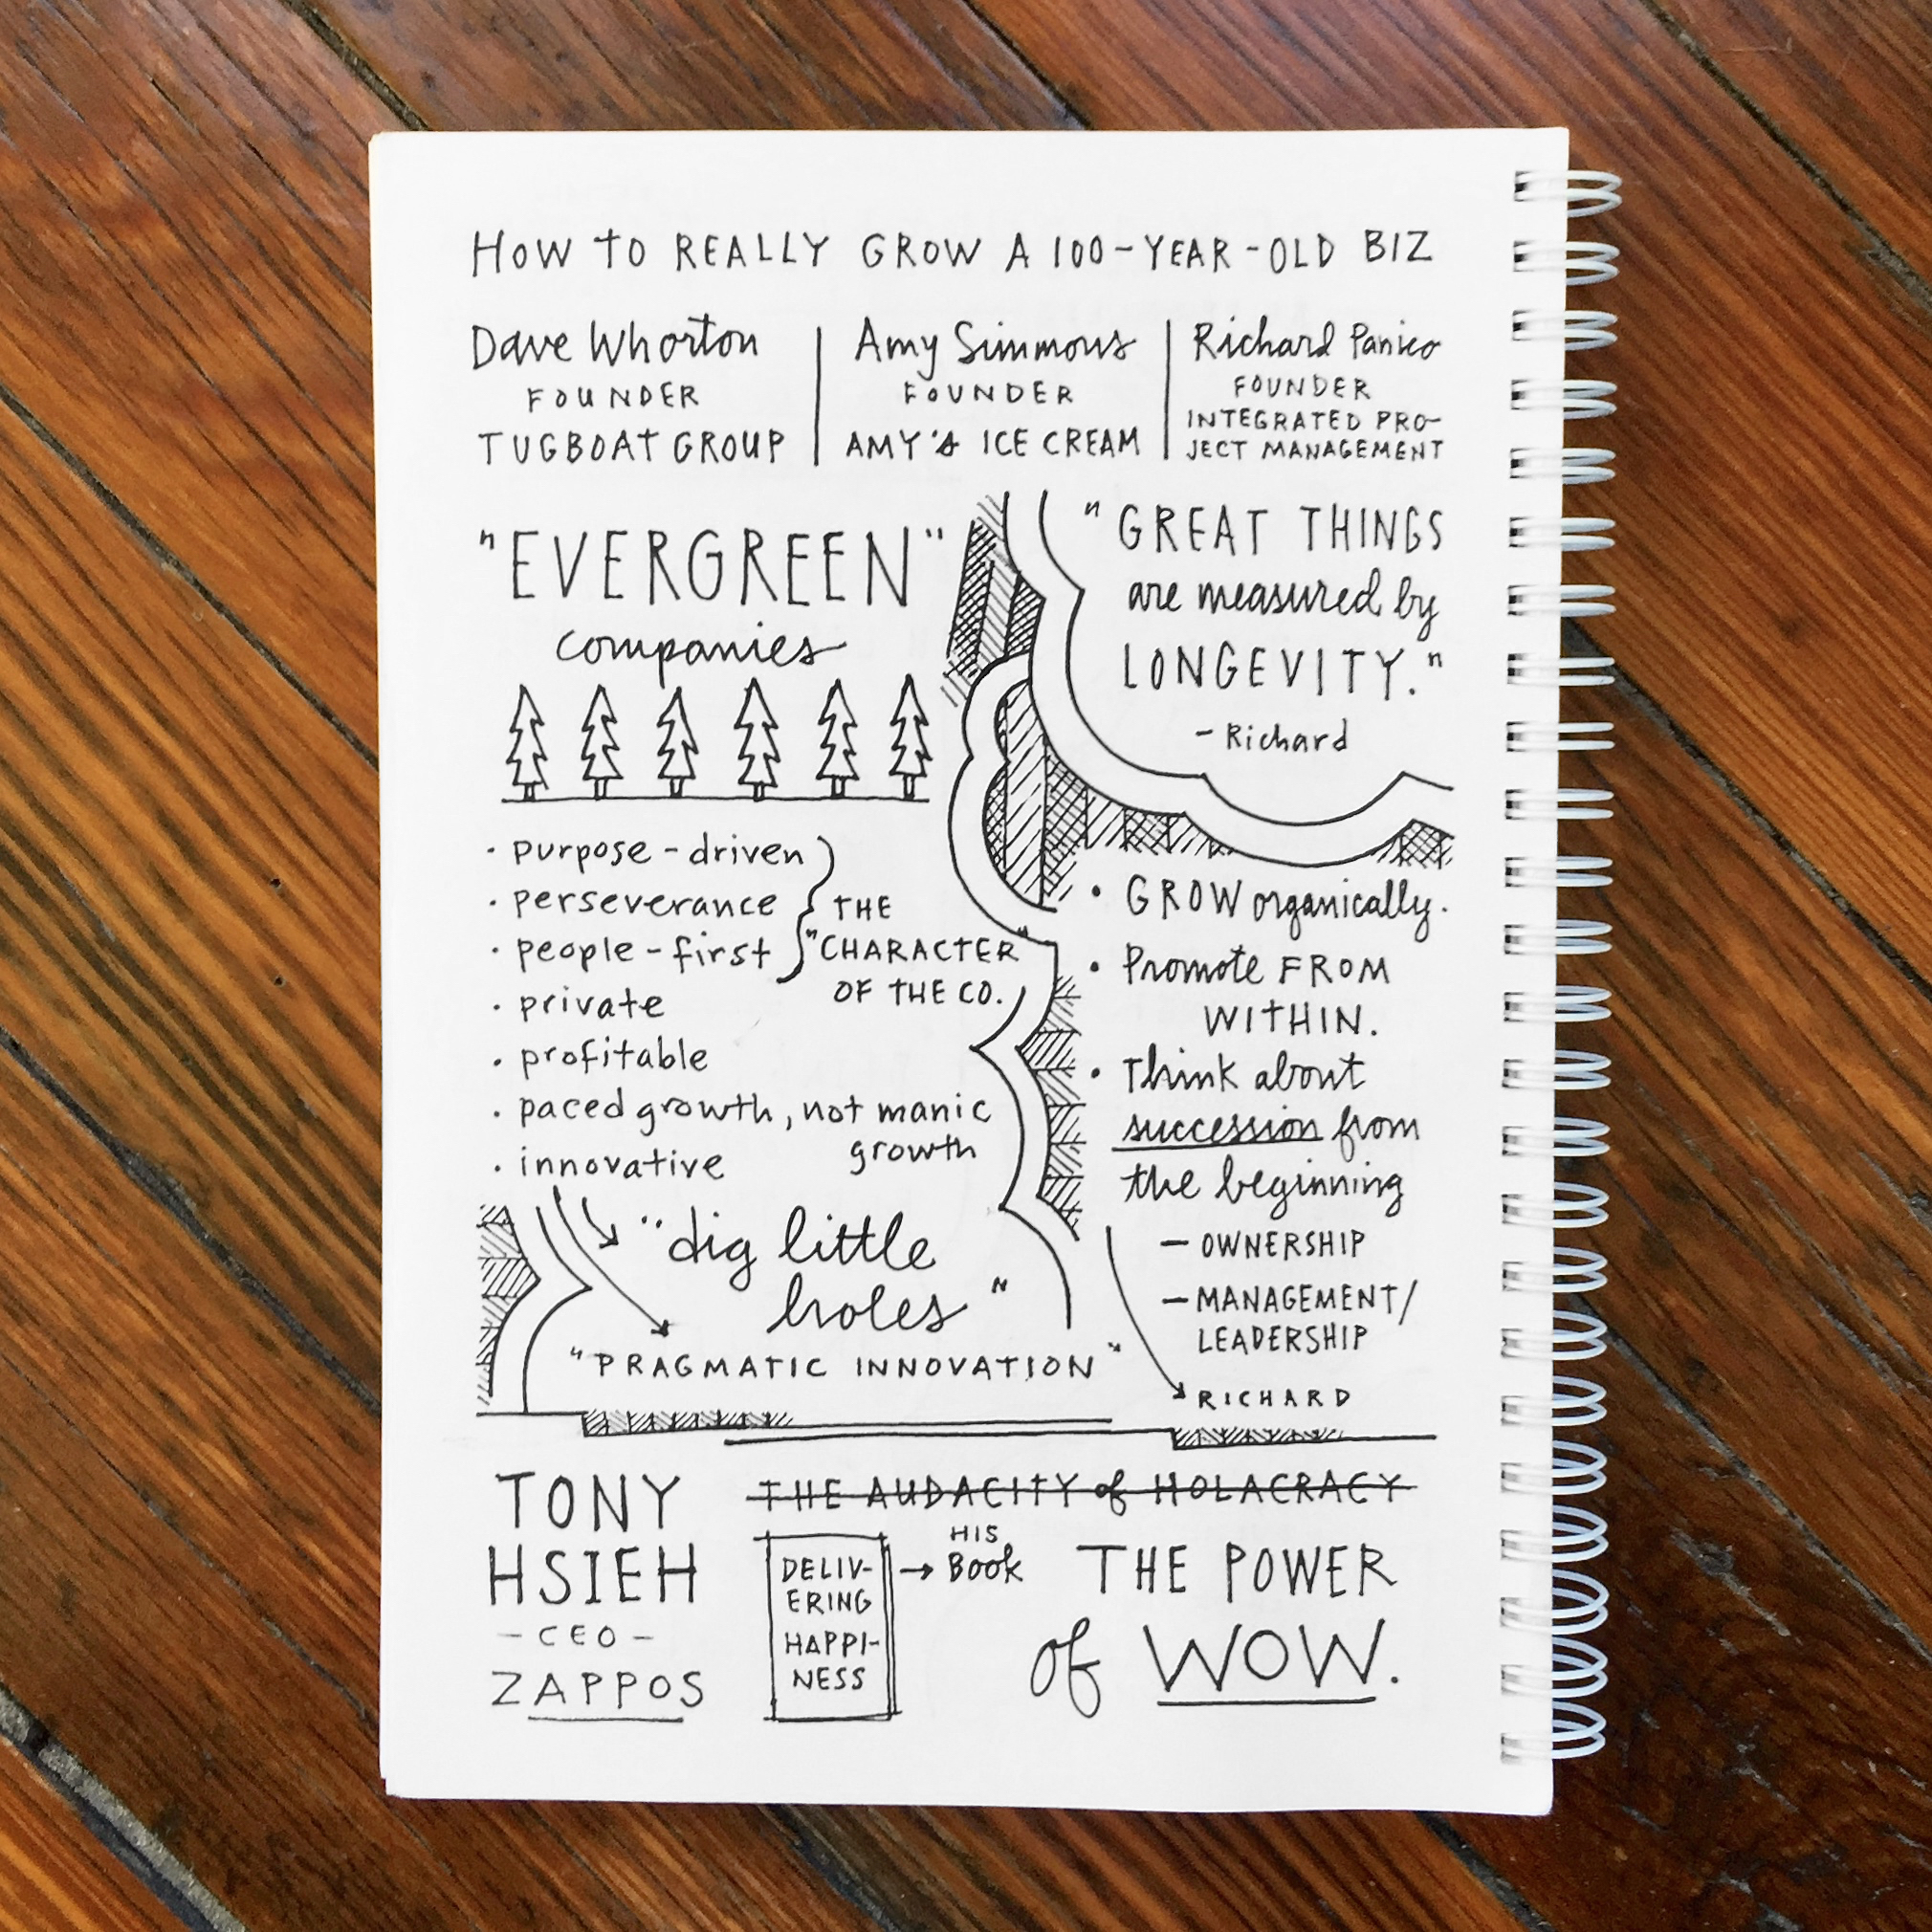 HOW TO REALLY GROW A 100-YEAR-OLD BIZ
Dave Whorton
FOUNDER
TUGBOAT GROUP
Amy Simmons
FOUNDER
AMY'S ICE CREAM
Richard Panico
FOUNDER
INTEGRATED PRO-
JECT MANAGEMENT
"EVERGREEN"
companies
· purpose-driven
· perseverance
· people-first
THE
"CHARACTER"
OF THE CO.
· private
· profitable
· paced growth, not manic
growth
· innovative
"dig little
holes"
"PRAGMATIC INNOVATION"
"GREAT THINGS
are measured by
LONGEVITY."
- Richard
• GROW organically.
• Promote FROM
WITHIN.
• Think about
succession from
the beginning
- OWNERSHIP
- MANAGEMENT/
LEADERSHIP
RICHARD
TONY
HSIEH
- CEO -
ZAPPOS
THE AUDACITY of HOLACRACY
DELIV-
ERING
HAPPI-
NESS
→ HIS
Book
THE POWER
of WOW.